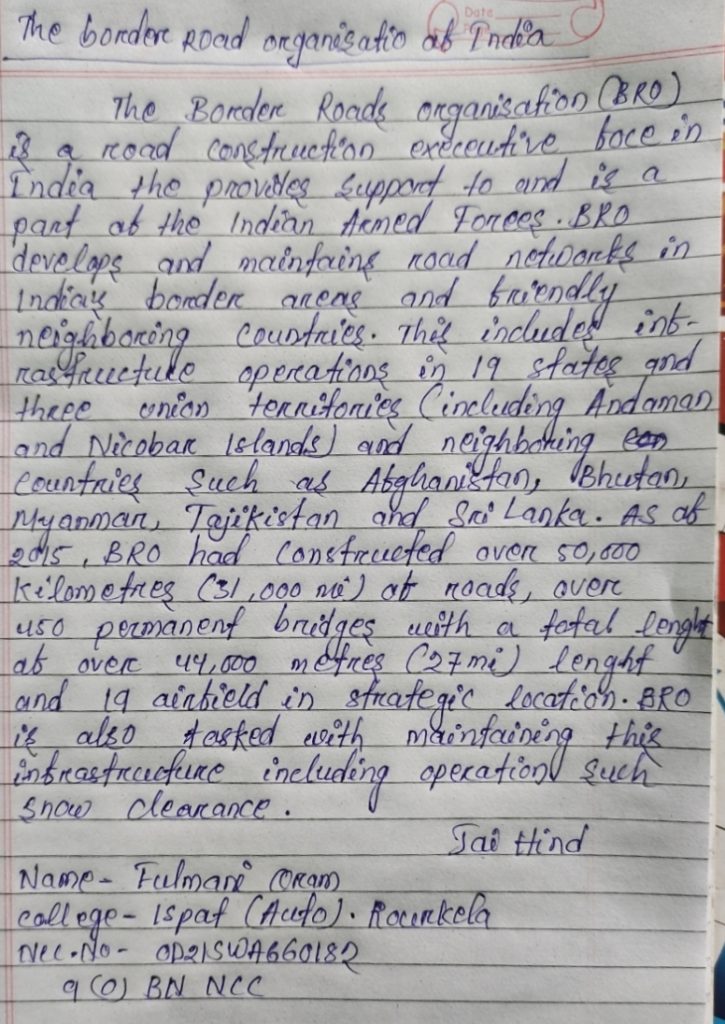 Date
The border Road organisatio of India
The Border Roads organisation (BRO)
is a road construction excecutive foce in
India the provides support to and is a
part of the Indian Armed Forces. BRO
develops and maintains road networks in
India's border areas and friendly
neighboring countries. This includes inf-
rastructure operations in 19 states and
three union territories (including Andaman
and Nicobar Islands) and neighboring
countries such as Afghanistan, Bhutan,
Myanmar, Tajikistan and Sri Lanka. As of
2015, BRO had constructed over 50,000
Kilometres (31,000 mi) of roads, over
450 permanent bridges with a total lenght
of over 44,000 metres (27mi) lenght
and 19 airfield in strategic location. BRO
is also tasked with maintaining this
infrastructure including operation such
snow clearance.
Jai Hind
Name - Fulmani Oram
college - Ispat (Auto). Rourkela
Ncc.No - OD21SWA660182
9 (O) BN NCC